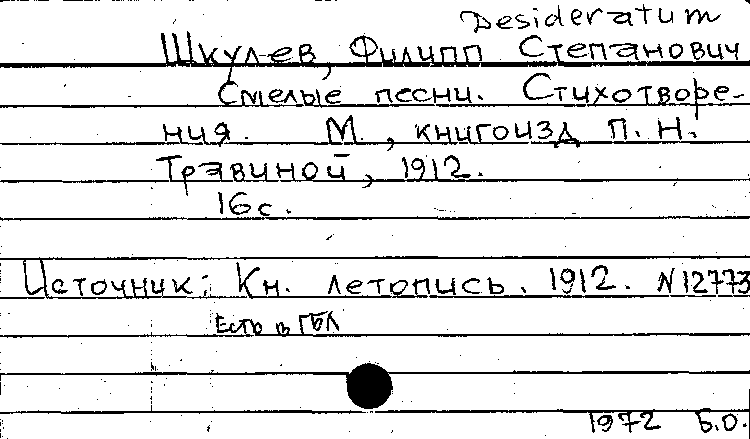 Desideratum
Шкулев, Филипп Степанович
Смелые песни. Стихотворе-
ния. М., книгоизд П. Н.
Травиной, 1912.
16 с.
Источник: Кн. летопись. 1912. N 12773
Есть в ГБЛ
1972 Б.О.